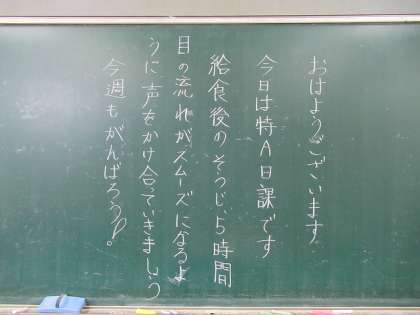 おはようございます
今日は特A日課です
給食後のそうじ、5時間
目の流れがスムーズになるよ
うに声をかけ合っていきましょう
今週もがんばろう!。